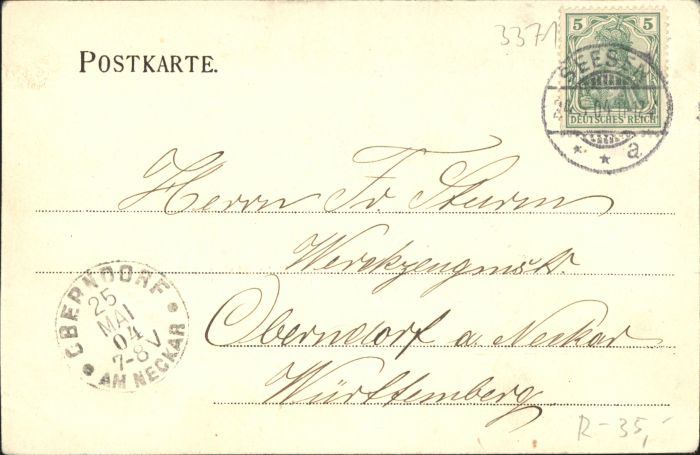 3371
5 5
POSTKARTE.
SEESEN
04
DEUTSCHES REICH
* * a
Herrn Fr. Sturm
Werkzeugmstr.
Oberndorf a. Neckar
Württemberg.
OBERNDORF
25
MAI
04
7-8V
AM NECKAR
R-35,-